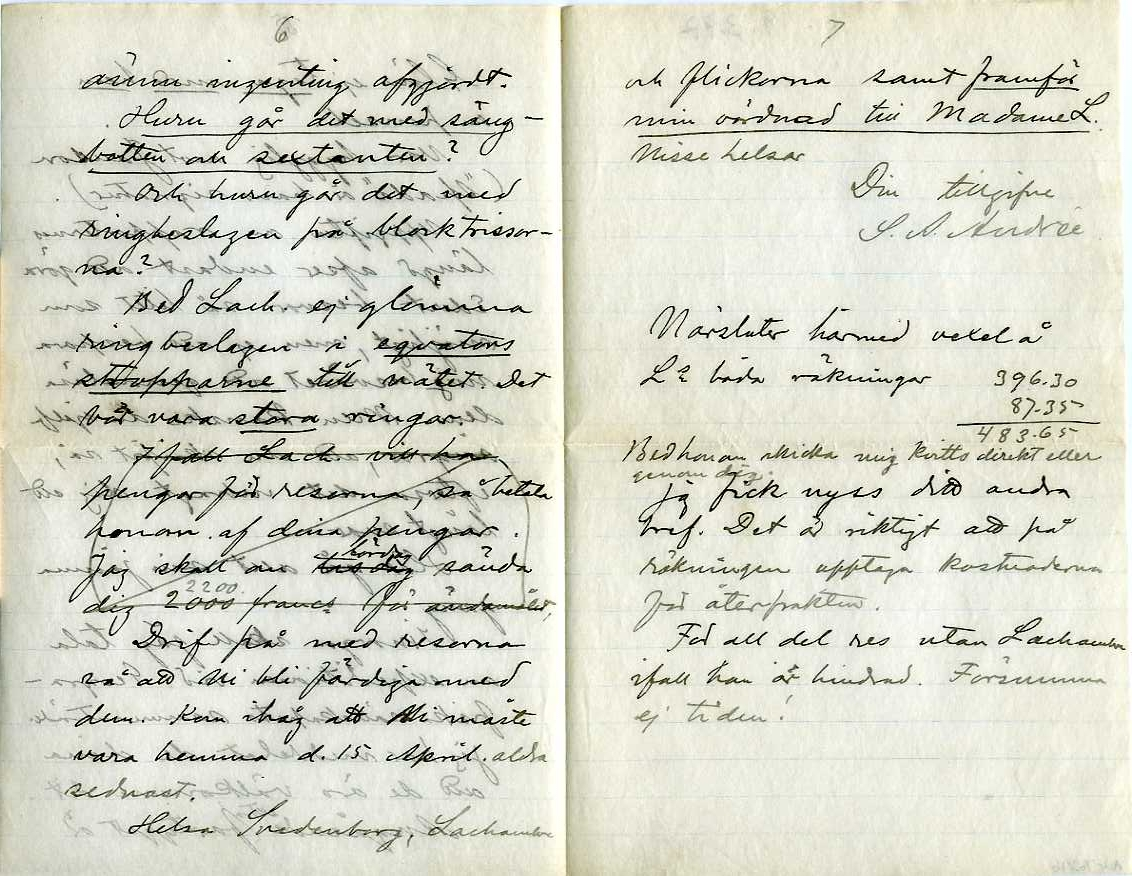 6
ännu ingenting afgjordt.
Huru går det med säng-
botten och sextanten?
Och huru går det med
ringbeslagen på blocktrissor-
na?
Bed Lach. ej glömma
ringbeslagen i eqvators
stropparne till nätet. Det
bör vara stora ringar.
Ifall Lach. vill ha
pengar för resorna, så betala
honom af dina pengar.
lördag
Jag skall om tisdag sända
2200
dig 2000 francs för ändamålet.
Drif på med resorna
så att Ni bli färdiga med
dem. Kom ihåg att Ni måste
vara hemma d. 15 April. aldra
sednast.
Helsa Svedenborg, Lachambre
7
och flickorna samt framför
min vördnad till Madame L.
Nisse helsar
Din tillgifne
S. A. Andrée
Närsluter härmed vexel å
Ls båda räkningar 396.30
87.35
483.65
Bed honom skicka mig kvitto direkt eller
genom dig.
Jag fick nyss ditt andra
bref. Det är riktigt att på
räkningen upptaga kostnaderna
för återfrakten.
För all del res utan Lachambre
ifall han är hindrad. Försumma
ej tiden!